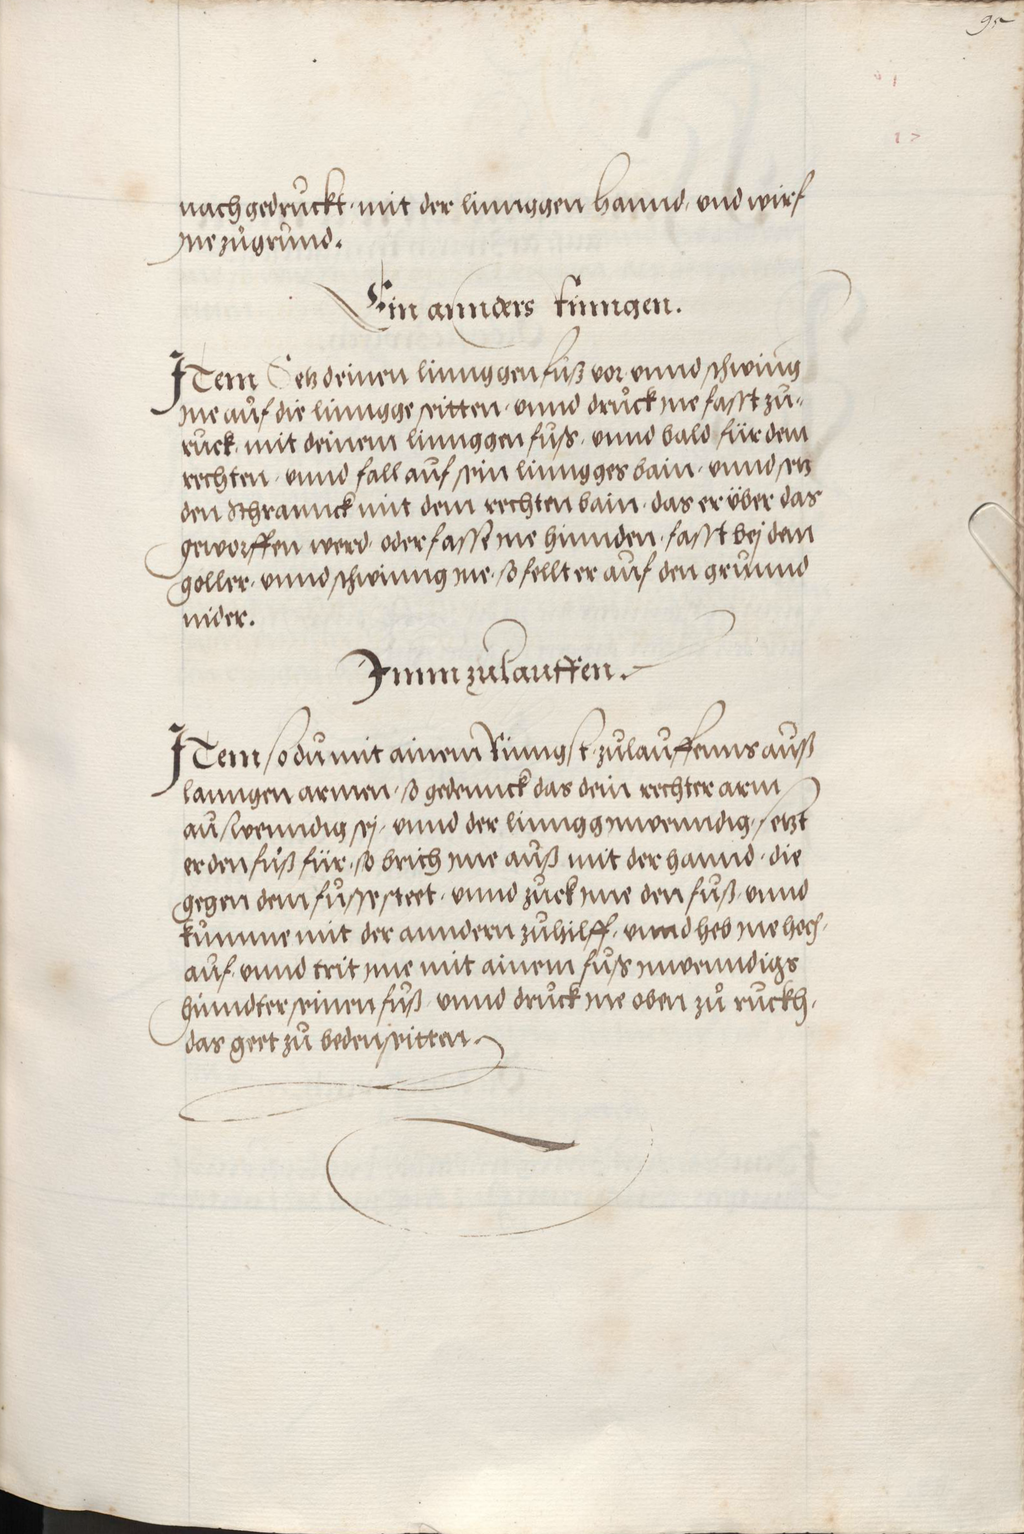 95
nachgedruckt · mit der linnggen hannd · vnd wirf
jne zůgrund.
Ein annders Ringen.
JTem Setz deinen linnggen fuß vor vnnd schwing
jne auf die linngge seitten · vnnd druck jne fasst zu-
ruck · mit deinem linnggen fuss · vnnd bald für dem
rechten · vnnd fall auf sein linngges bain · vnnd setz
den schrannck mit dem rechten bain · das er über das
geworffen werd · oder fasse jne hinnden · fasst bej dem
goller · vnnd schwinng jne · so fellt er auf den grunnd
nider.
Jmm zulauffen.
JTem so du mit ainem Ringst · zulauffenns auß
lanngen armen · so gedennck das dein rechter arm
auswenndig sej · vnnd der linngg jnwenndig · setzt
er den fuß für · so brich jme auß mit der hannd · die
gegen dem fusse steet · vnnd zuck jme den fuß · vnnd
kumme mit der anndern zuhilff · vnnd heb jne hoch
auf · vnnd trit jme mit ainem fuss jnwenndigs
hinndter seinen fuß · vnnd druck jne oben zů ruckh ·
das geet zů beden seitten